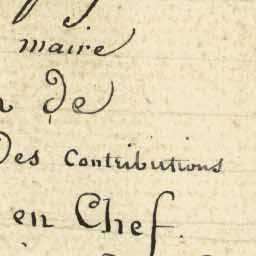 maire
De
Des Contributions
en Chef.